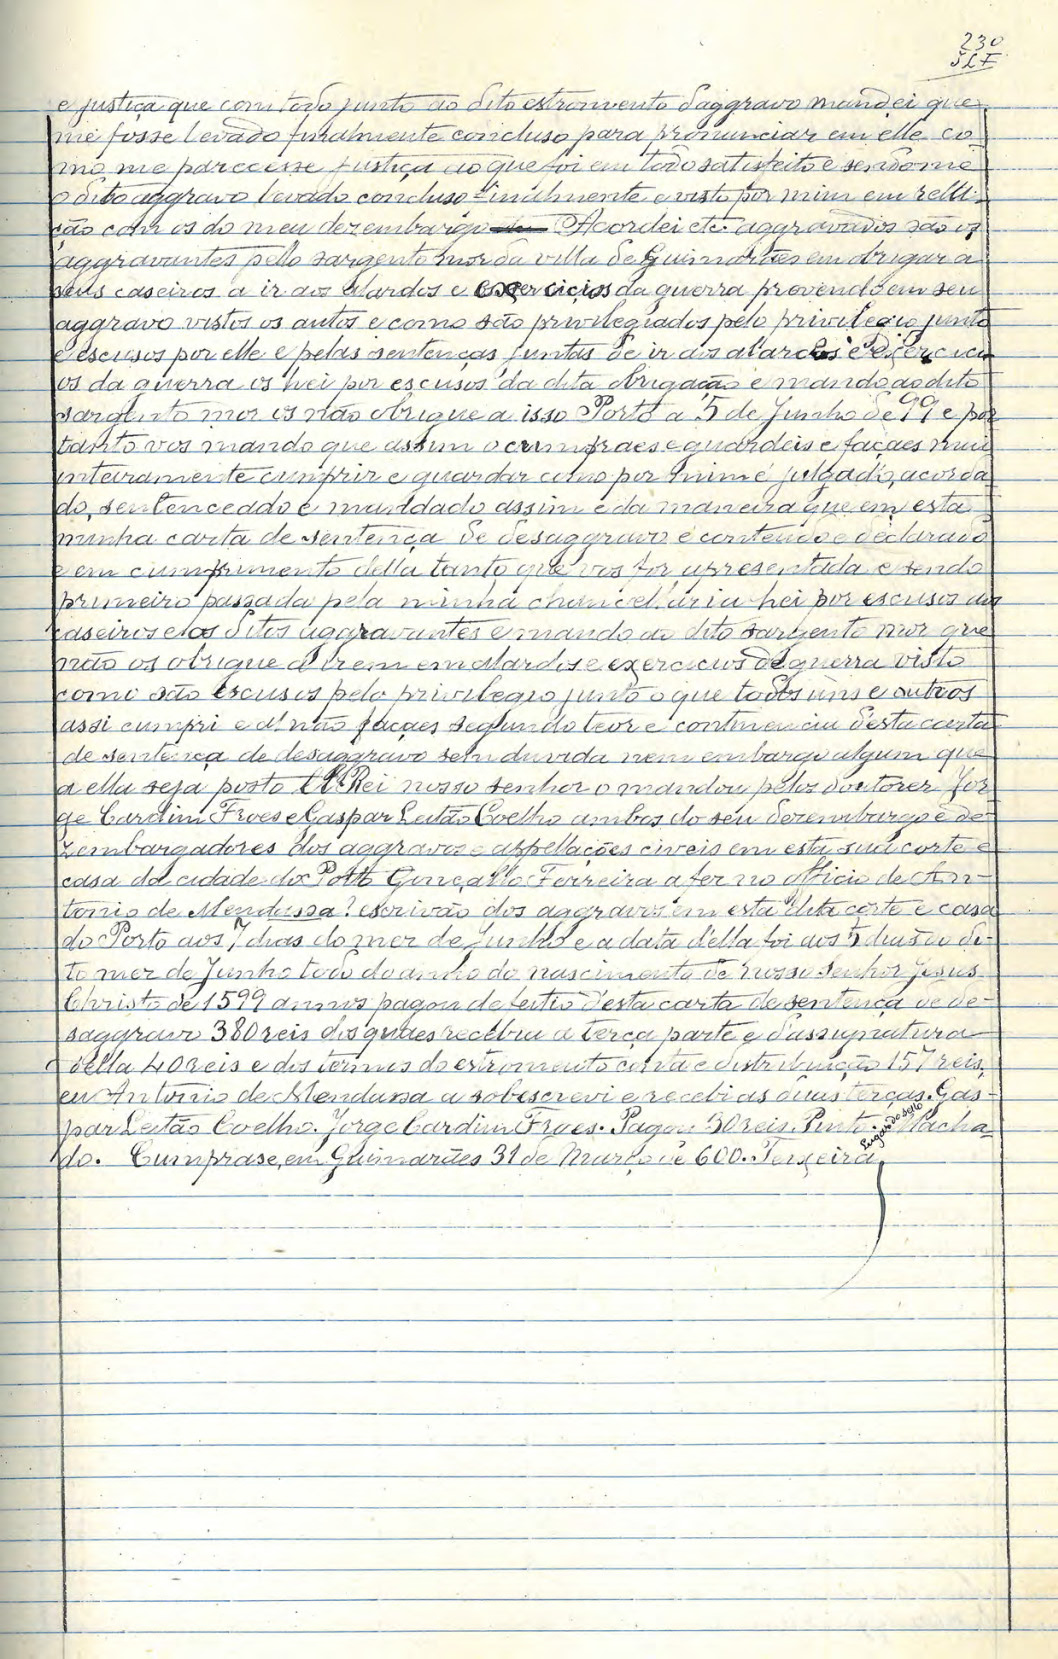 230
e justiça que com todo junto ao dito estromento d'aggravo mandei que
me fosse levado finalmente concluso para pronunciar em elle co-
mo me parecesse justiça ao que foi em todo satisfeito e sendo-me
o dito aggravo levado concluso finalmente e visto por mim em rella-
ção com os do meu dezembargo Acordei etc. aggravados são os
aggravantes pello sargento mor da villa de Guimarães em obrigar a
seus caseiros a ir aos alardos e exercicios da guerra provendo em seu
aggravo vistos os autos e como são privilegiados pelo privilegio junto
e escusos por elle e pelas sentenças juntas de ir aos alardos e exercici-
os da guerra os hei por escusos da dita obrigação e mando ao dito
sargento mor os não obrigue a isso Porto a 5 de Junho de 99 e por
tanto vos mando que assim o cumpraes e guardeis e façaes mui
inteiramente cumprir e guardar como por mim é julgado, acorda-
do, sentenceado e mandado assim e da maneira que em esta
minha carta de sentença de desaggravo é conteudo e declarado
e em cumprimento della tanto que vos for apresentada e sendo
primeiro passada pela minha chancellaria hei por escusos aos
caseiros e aos ditos aggravantes e mando ao dito sargento mor que
não os obrigue a irem em alardos e exercicios de guerra visto
como são escusos pelo privilegio junto o que todos uns e outros
assi cumpri e al não façaes segundo teor e continencia desta carta
de sentença de desaggravo sem duvida nem embargo algum que
a ella seja posto El-Rei nosso senhor o mandou pelos doutores Jor-
ge Cardim Froes e Gaspar Leitão Coelho ambos do seu dezembargo e de-
zembargadores dos aggravos e appellações civeis em esta sua corte e
casa da cidade do Porto Gonçallo Ferreira a fez no officio de An-
tonio de Mendassa? escrivão dos aggravos em esta dita corte e casa
do Porto aos 7 dias do mez de Junho e a data d'ella foi aos 5 dias do di-
to mez de Junho todo do anno do nascimento de nosso Senhor Jesus
Christo de 1599 annos pagou de feitio d'esta carta de sentença de de-
saggravo 380 reis dos quaes recebeu a terça parte e d'assignatura
della 40 reis e dos termos do estromento conta e distribuição 157 reis,
eu Antonio de Mendassa a sobescrevi e recebi as duas terças. Gas-
par Leitão Coelho. Jorge Cardim Froes. Pagou 30 reis. Pinto. Lugar do sello Macha-
do. Cumpra-se, em Guimarães 31 de Março de 600. Teixeira